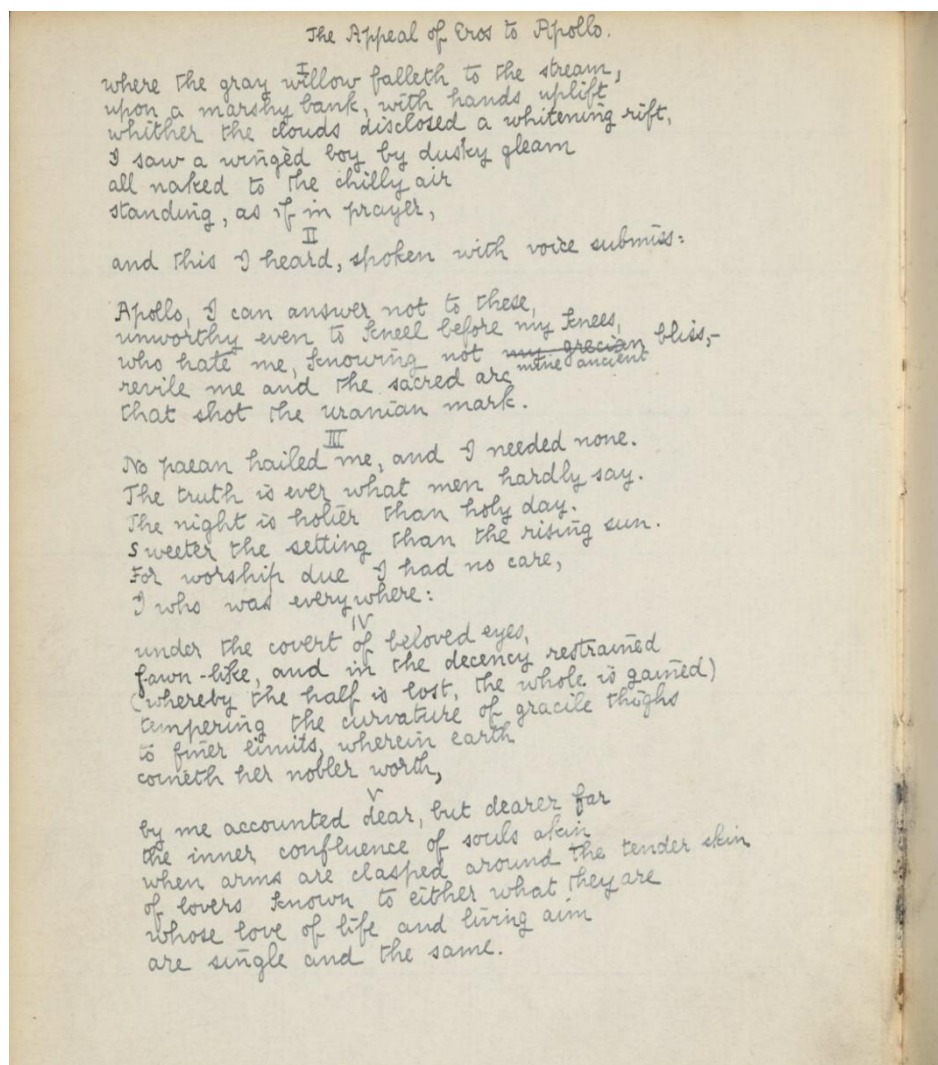 The Appeal of Eros to Apollo.
I
where the gray willow falleth to the stream,
upon a marshy bank, with hands uplift
whither the clouds disclosed a whitening rift,
I saw a wingèd boy by dusky gleam
all naked to the chilly air
standing, as if in prayer,
II
and this I heard, spoken with voice submiss:
Apollo, I can answer not to these,
unworthy even to kneel before my knees,
who hate me, knowing not my grecian bliss,-
mine ancient
revile me and the sacred arc
that shot the uranian mark.
III
No paean hailed me, and I needed none.
The truth is ever what men hardly say.
The night is holier than holy day.
Sweeter the setting than the rising sun.
For worship due I had no care,
I who was everywhere:
IV
under the covert of beloved eyes,
fawn-like, and in the decency restrained
(whereby the half is lost, the whole is gained)
tempering the curvature of gracile thighs
to finer limits, wherein earth
cometh her nobler worth,
V
by me accounted dear, but dearer far
the inner confluence of souls akin
when arms are clasped around the tender skin
of lovers known to either what they are
whose love of life and living aim
are single and the same.